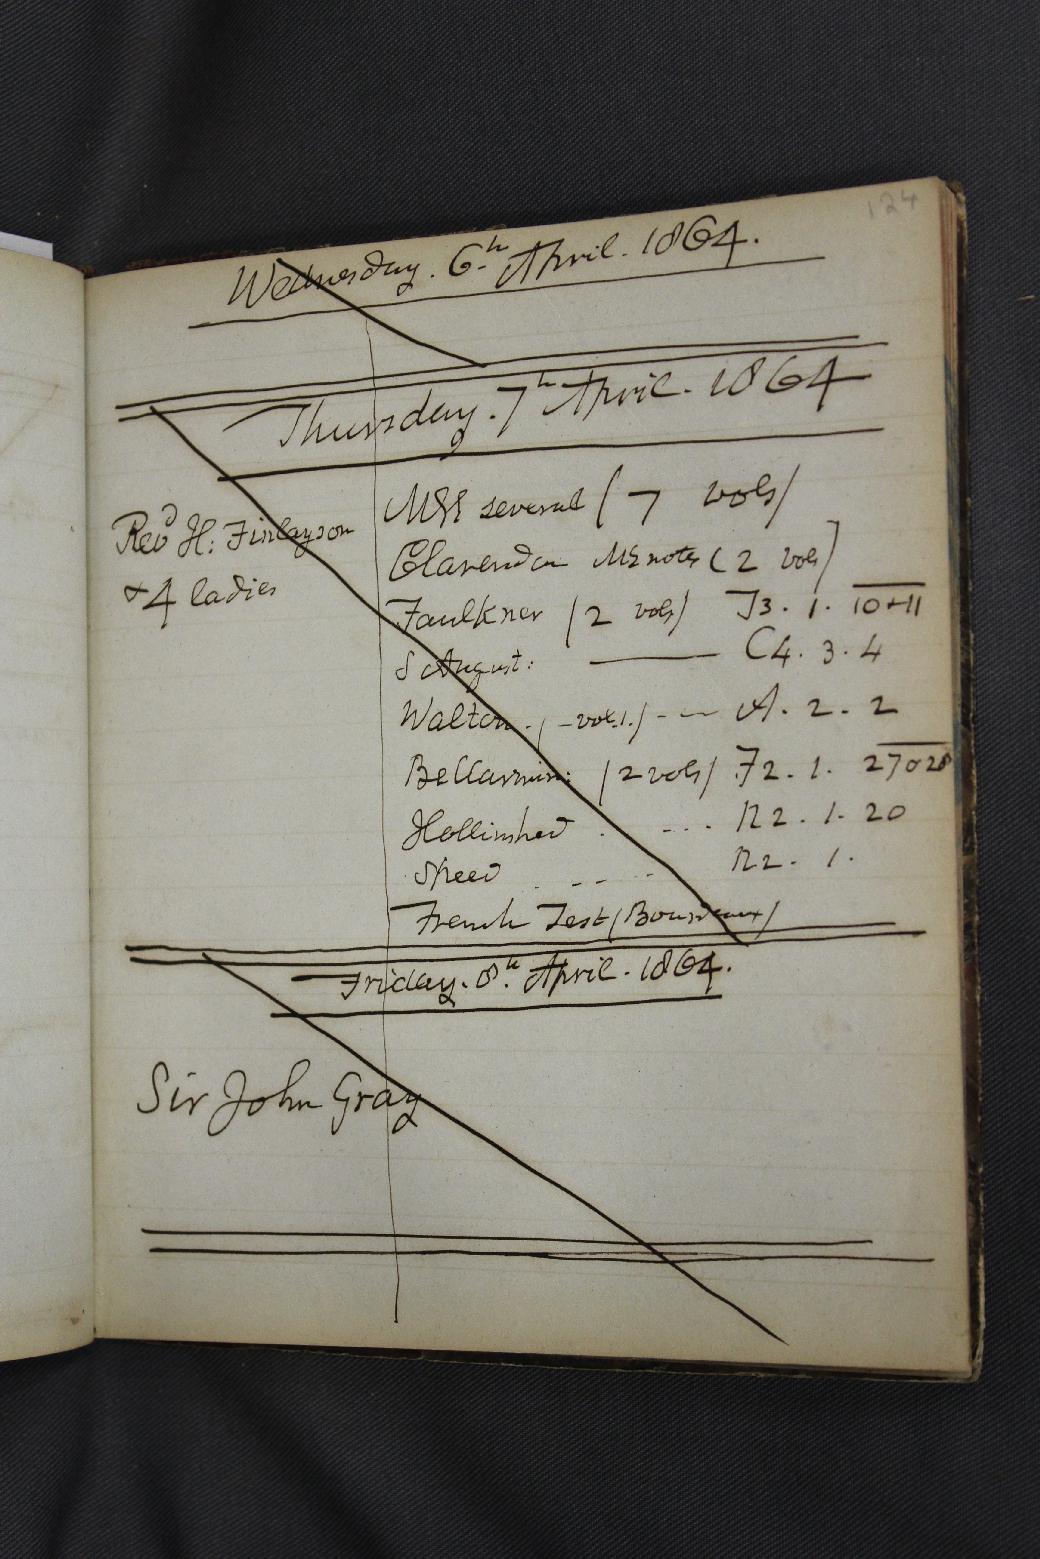 124
Wednesday. 6th April. 1864.
Thursday. 7th April. 1864
Revd H: Finlayson
+ 4 ladies
MSS several (7 vols)
Clarendon MS notes (2 vols)
Faulkner (2 vols) J3. 1. 10+11
S August: —— C4. 3. 4
Walton. (-vol.1.) - — A. 2. 2
Bellarmin: (2 vols) F2. 1. 27 & 28
Hollinshed . - - - R2. 1. 20
Speed . - - - R2. 1.
French Test (Bourdeaux)
Friday. 8th. April. 1864.
Sir John Gray